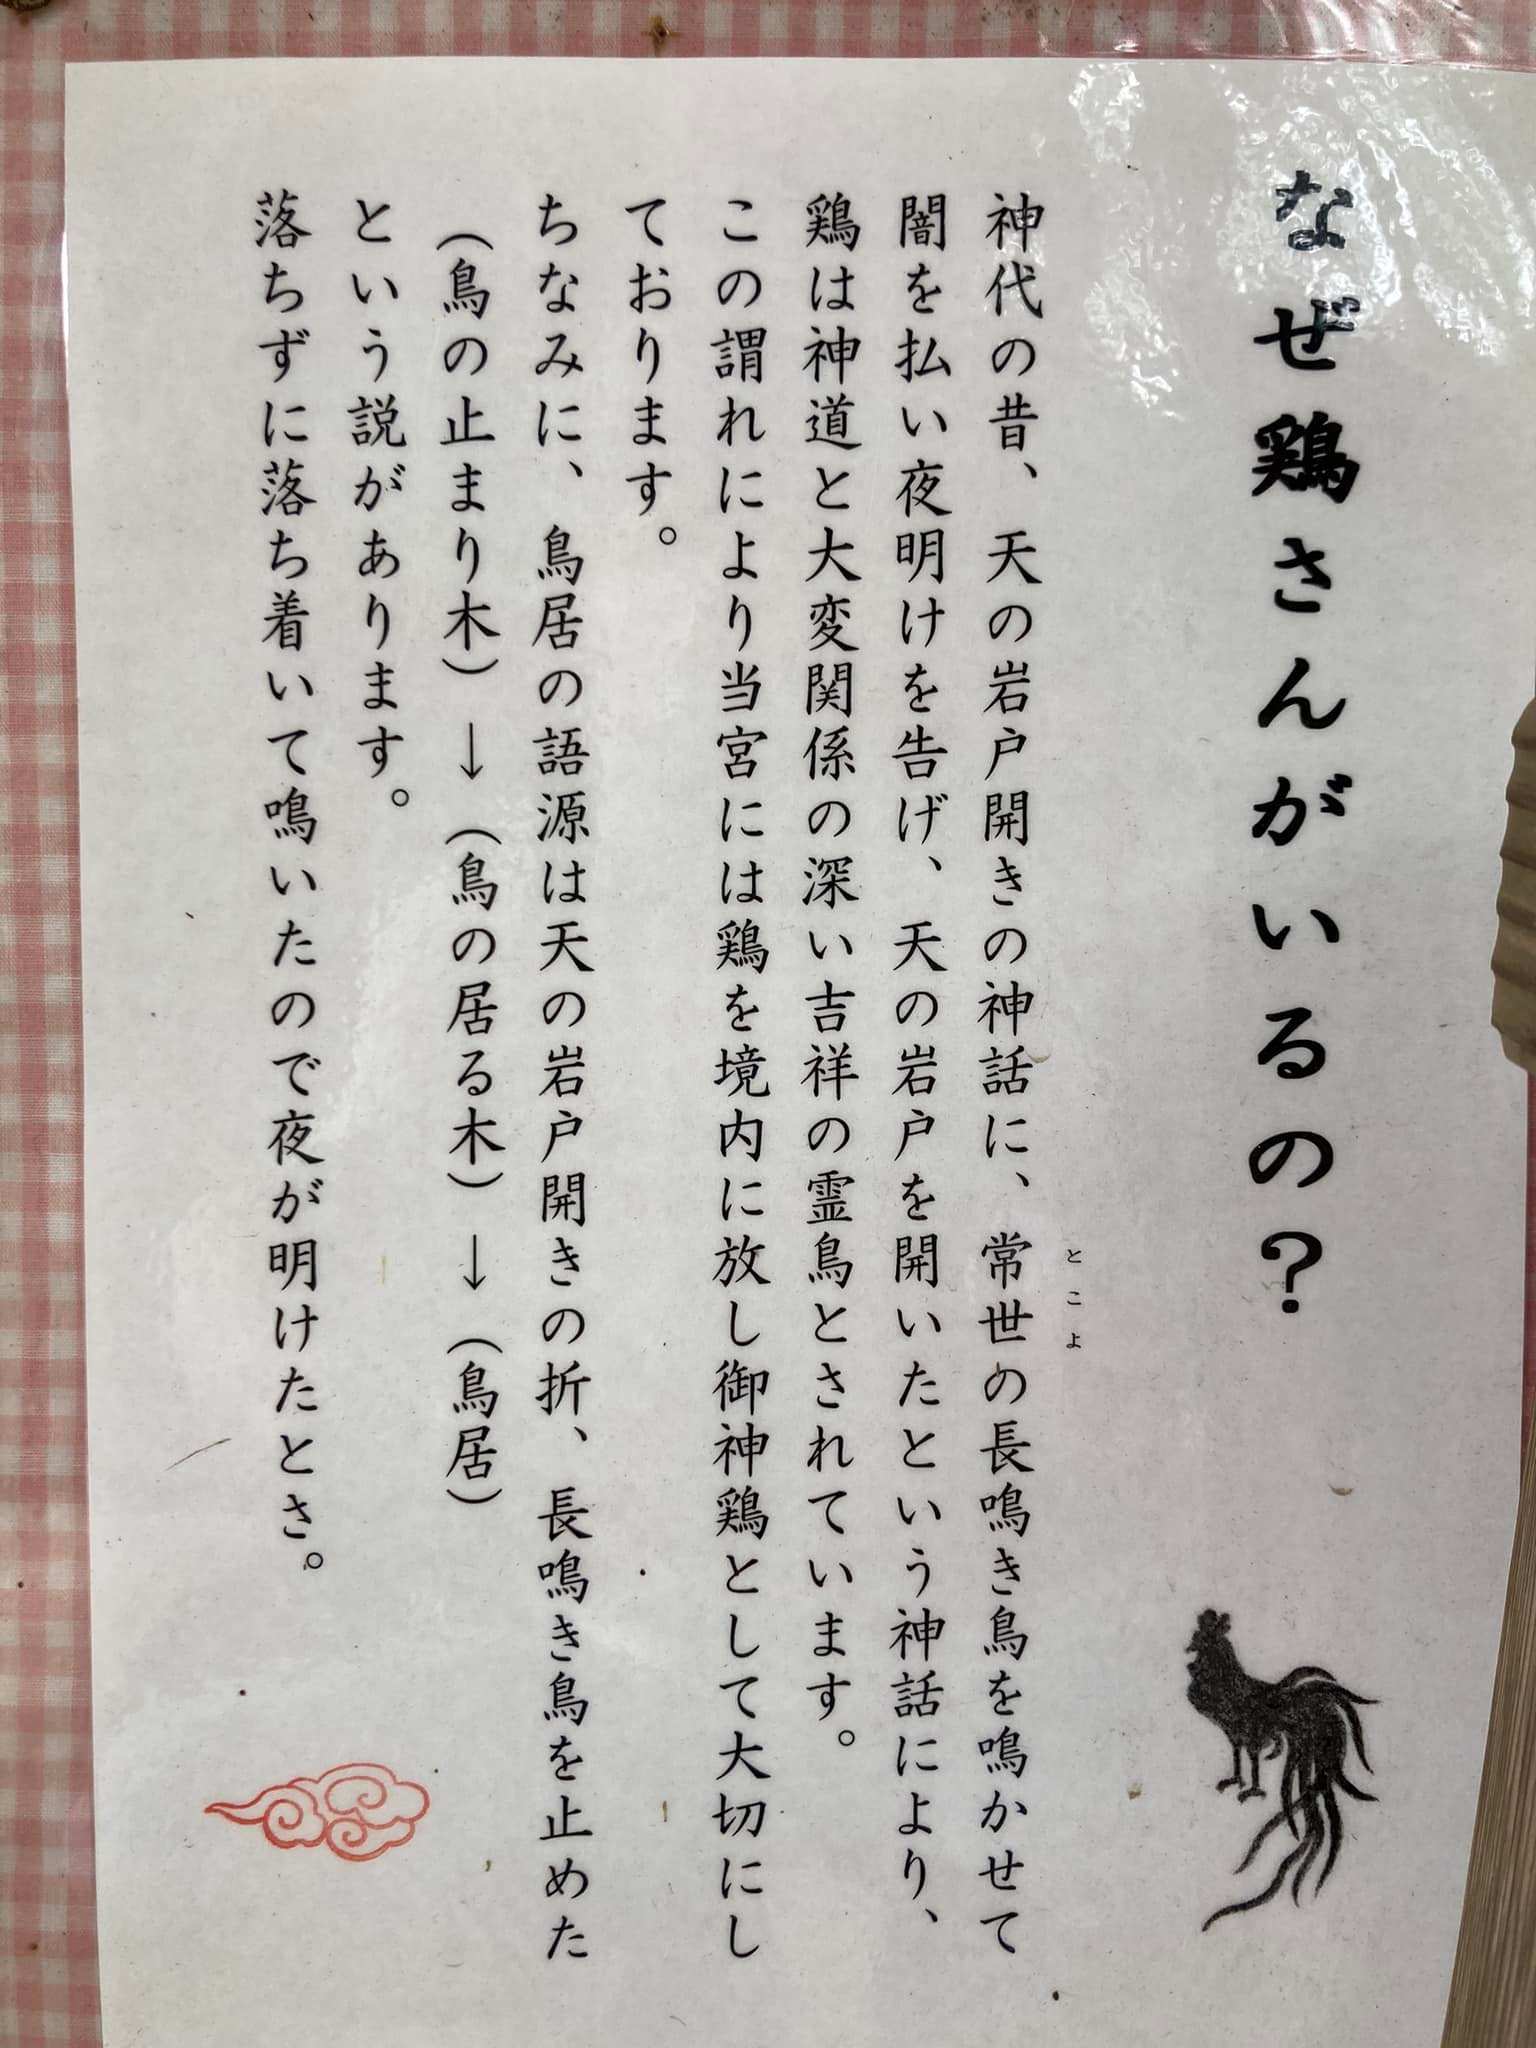 なぜ鶏さんがいるの？
神代の昔、天の岩戸開きの神話に、常世の長鳴き鳥を鳴かせて
とこよ
闇を払い夜明けを告げ、天の岩戸を開いたという神話により、
鶏は神道と大変関係の深い吉祥の霊鳥とされています。
この謂れにより当宮には鶏を境内に放し御神鶏として大切にし
ております。
ちなみに、鳥居の語源は天の岩戸開きの折、長鳴き鳥を止めた
（鳥の止まり木）→（鳥の居る木）→（鳥居）
という説があります。
落ちずに落ち着いて鳴いたので夜が明けたとさ。